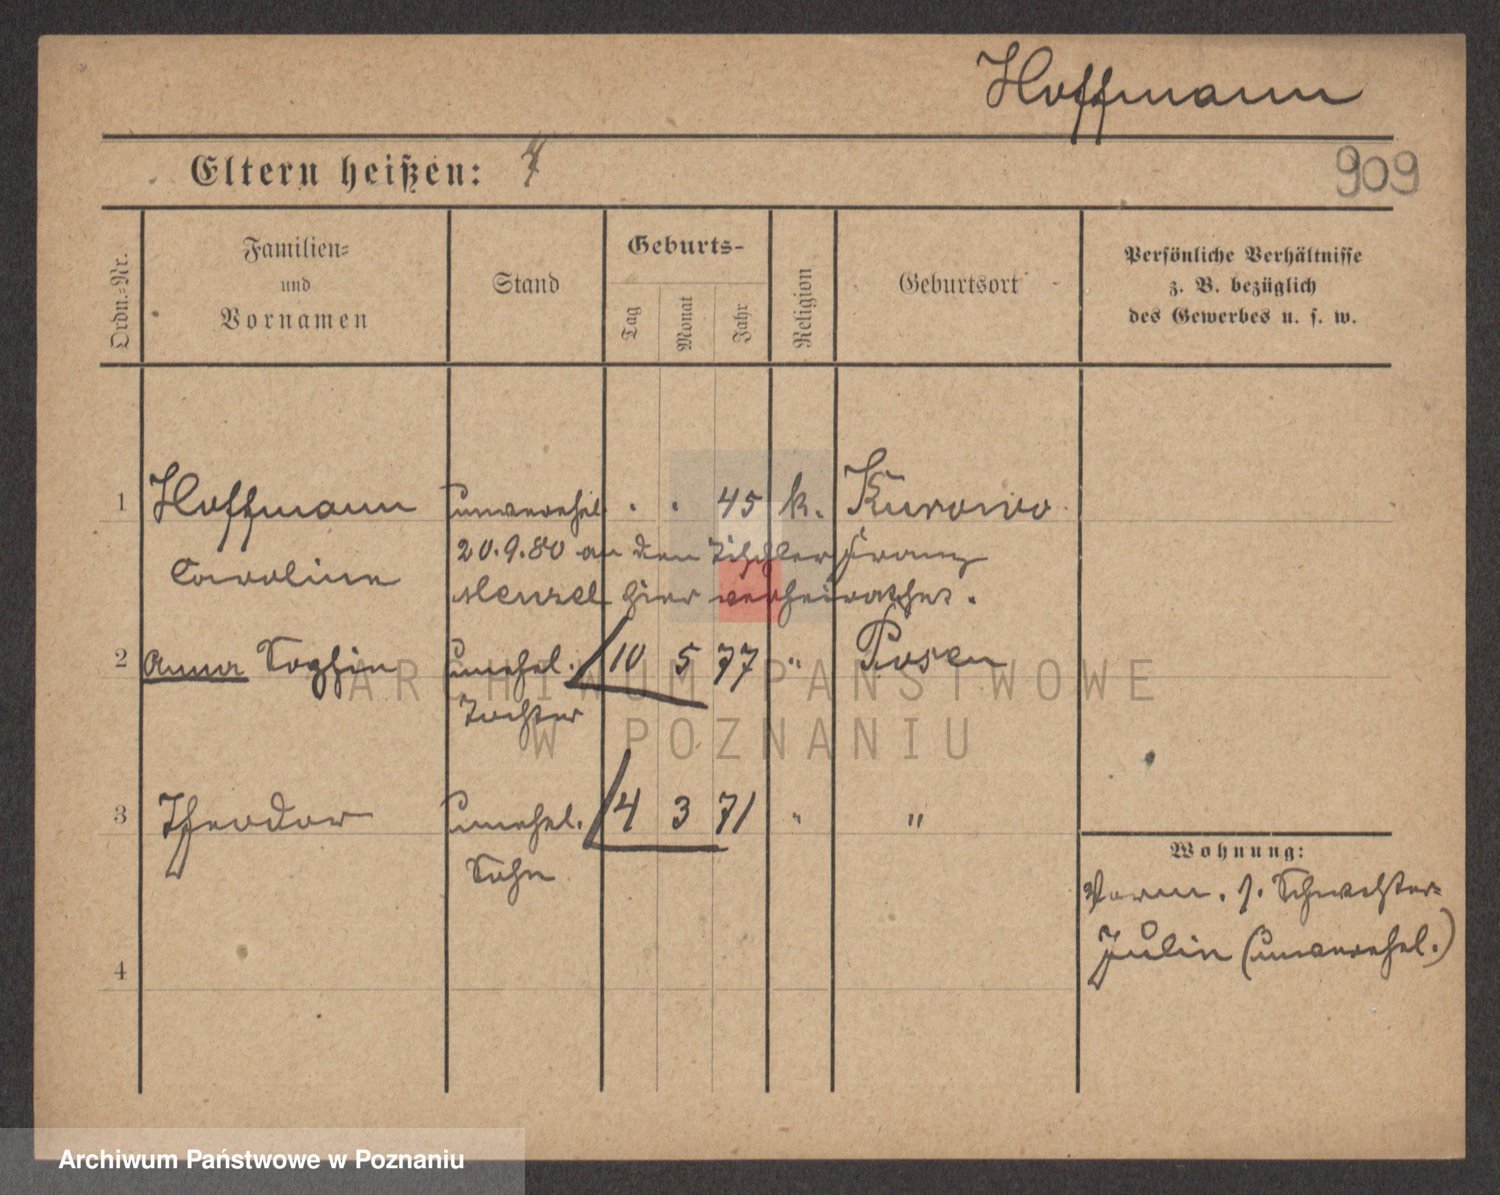 Hoffmann
Eltern heißen:
909
Ordn.-Nr.
Familien-
und
Vornamen
Stand
Geburts-
Tag
Monat
Jahr
Religion
Geburtsort
Persönliche Verhältnisse
z. B. bezüglich
des Gewerbes u. s. w.
1 Hoffmann unverehel. " " 45 k. Kurowo
20.9.80 an den Tischler Franz
Caroline
Menzel hier verheirathet.
2 Anna Sophie unehel. 10 5 77 " Posen
Tochter
3 Theodor unehel. 4 3 71 " "
Sohn
4
Wohnung:
Verm. s. Schwester
Julie (unverehel.)
ARCHIWUM PAŃSTWOWE
W POZNANIU
Archiwum Państwowe w Poznaniu